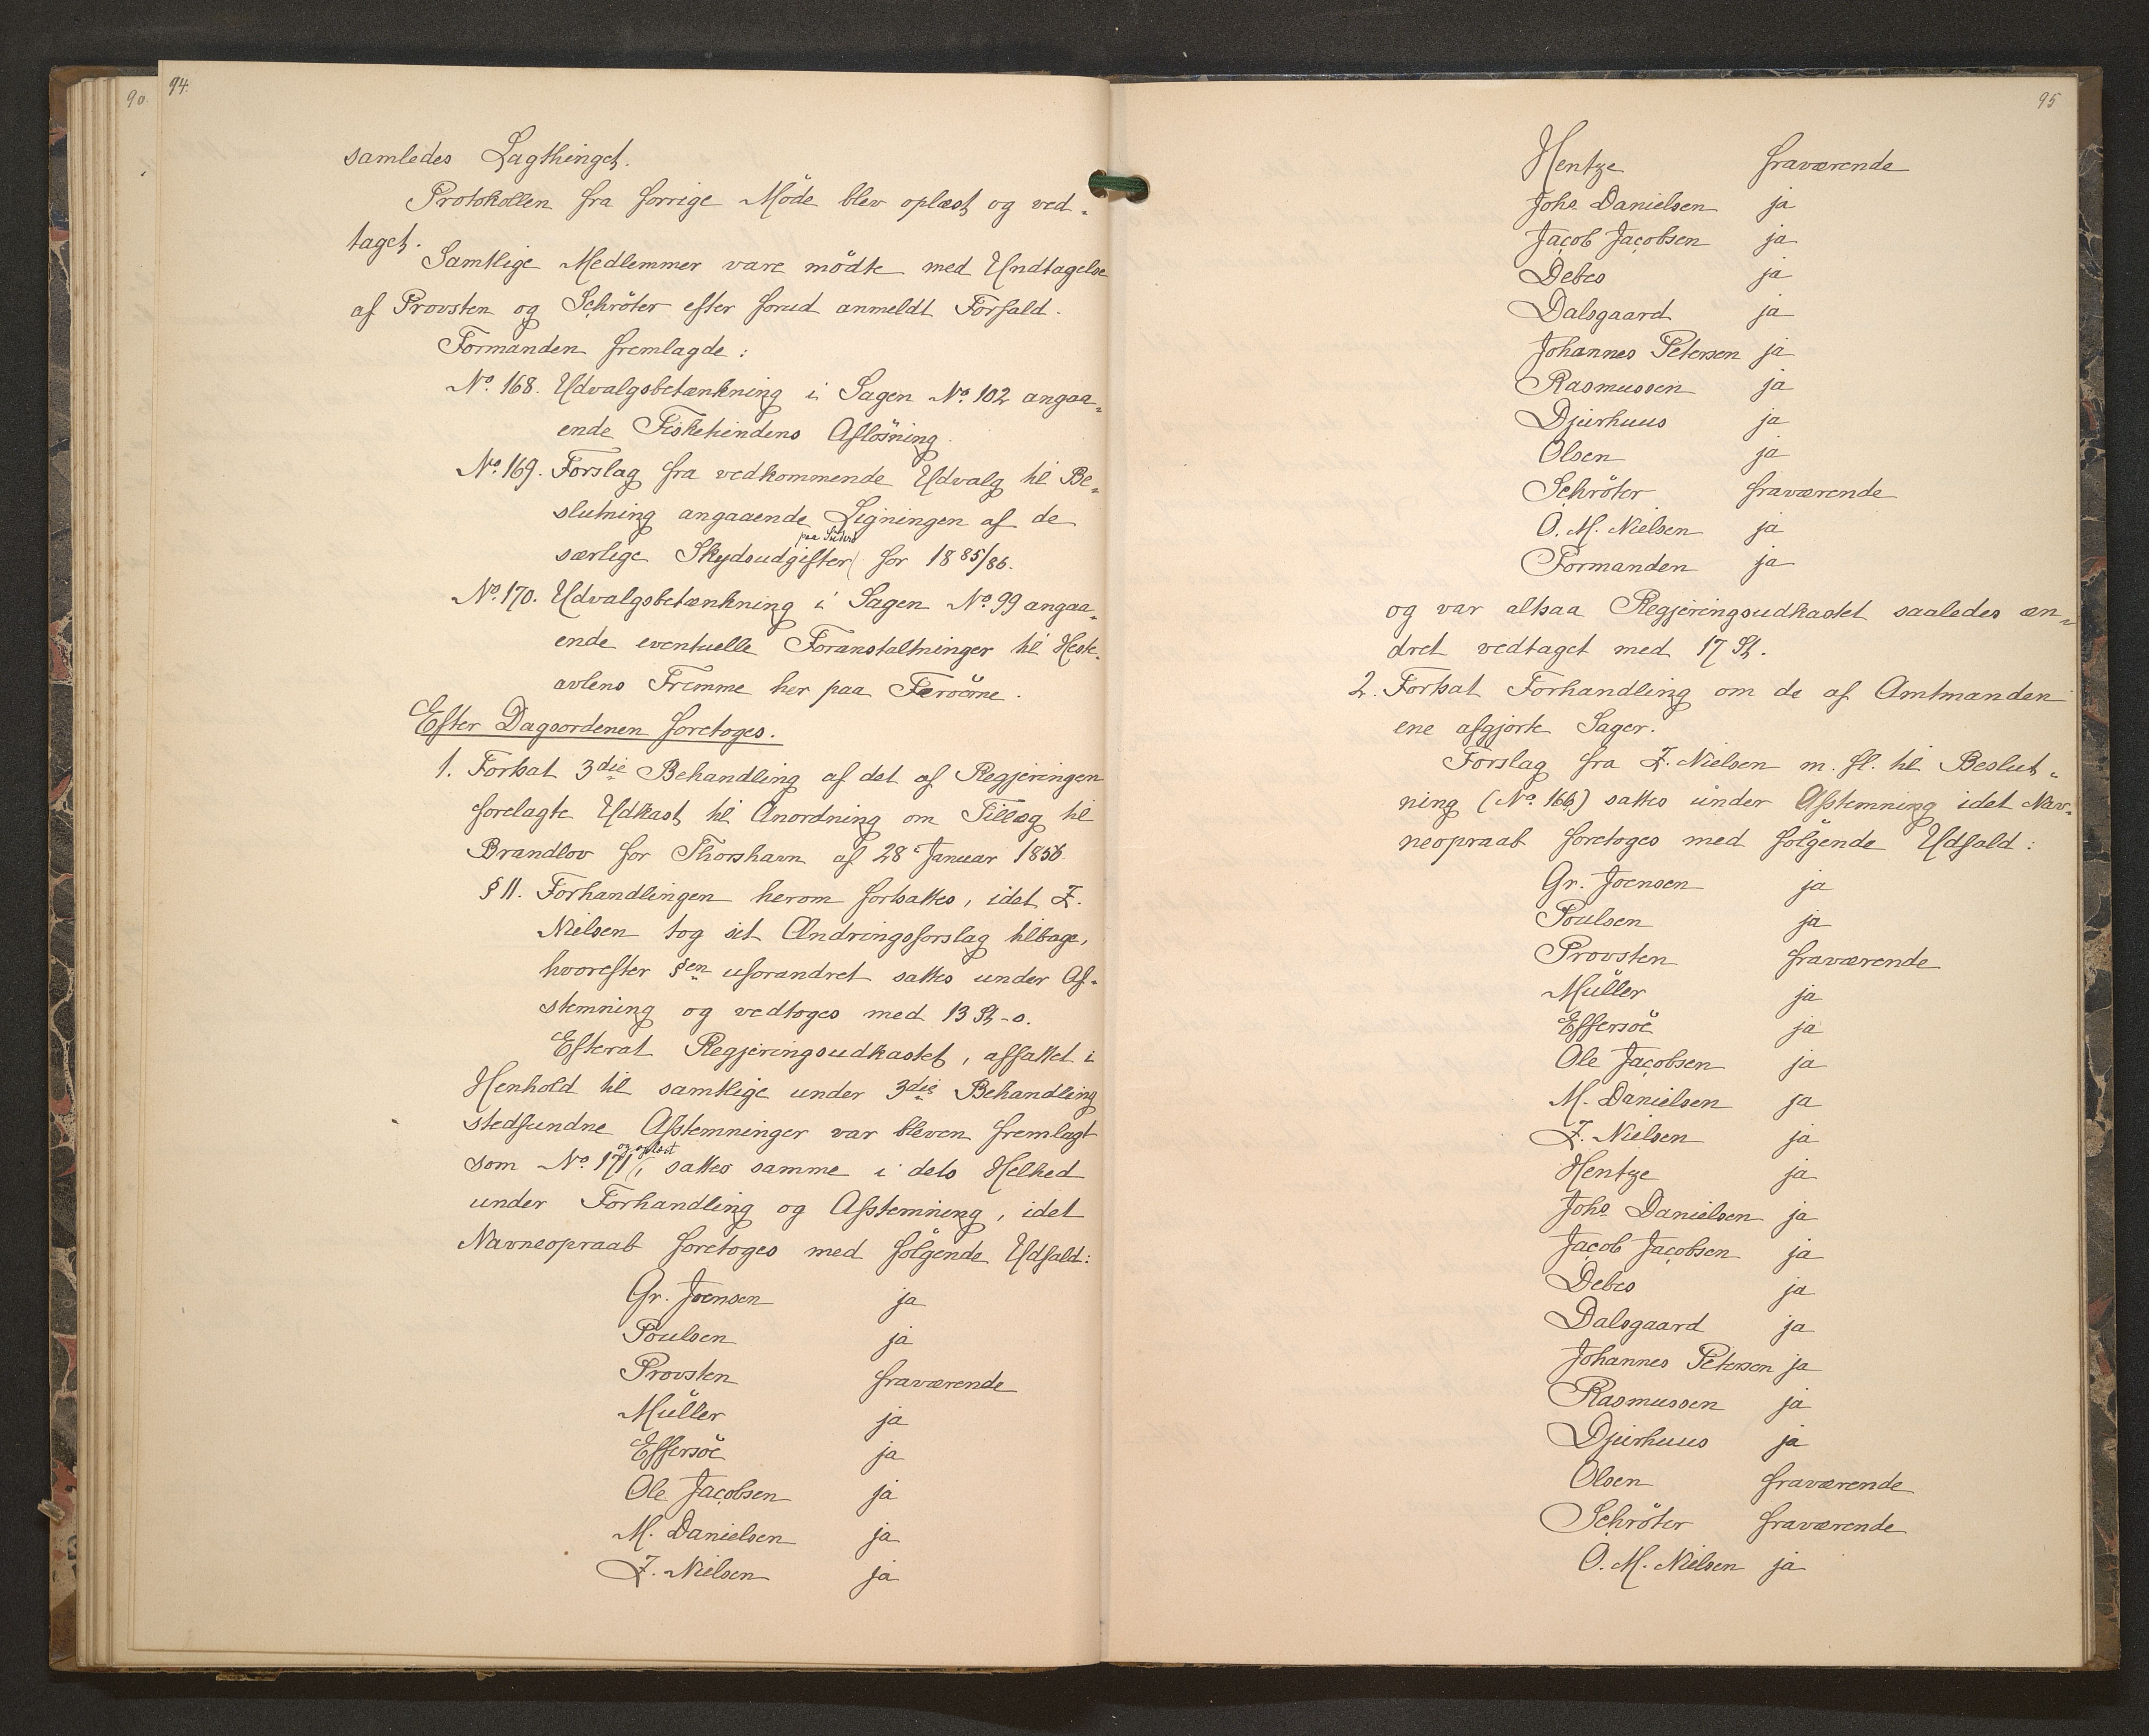 90.
94.
samledes Lagthinget.
Protokollen fra forrige Möde blev oplæst og ved-
taget.
Samtlige Medlemmer vare mödte med Undtagelse
af Provsten og Schröter efter forud anmeldt Forfald.
Formanden fremlagde:
No. 168. Udvalgsbetænkning i Sagen No. 102 angaa-
ende Fisketiendens Aflösning.
No. 169. Forslag fra vedkommende Udvalg til Be-
slutning angaaende Ligningen af de
paa Suderö
særlige Skydsudgifter for 1885/86.
No. 170. Udvalgsbetænkning i Sagen No. 99 angaa-
ende eventuelle Foranstaltninger til Heste-
avlens Fremme her paa Færöerne.
Efter Dagsordenen foretoges.
1. Fortsat 3die Behandling af det af Regjeringen
forelagte Udkast til Anordning om Tillæg til
Brandlov for Thorshavn af 28 Januar 1856.
§ 11. Forhandlingen herom fortsattes, idet Z.
Nielsen tog sit Ændringsforslag tilbage,
hvorefter §en uforandret sattes under Af-
stemning og vedtoges med 13 St-0.
Efterat Regjeringsudkastet, affattet i
Henhold til samtlige under 3die Behandling
stedfundne Afstemninger var bleven fremlagt
og oplæst
som No. 171, sattes samme i dets Helhed
under Forhandling og Afstemning, idet
Navneopraab foretoges med fölgende Udfald:
Gr. Joensen ja
Poulsen ja
Provsten fraværende
Müller ja
Effersöe ja
Ole Jacobsen ja
M. Danielsen ja
Z. Nielsen ja
95
Hentze fraværende
Johs Danielsen ja
Jacob Jacobsen ja
Debes ja
Dalsgaard ja
Johannes Petersen ja
Rasmussen ja
Djurhuus ja
Olsen ja
Schröter fraværende
O. M. Nielsen ja
Formanden ja
og var altsaa Regjeringsudkastet saaledes æn-
dret vedtaget med 17 St.
2. Fortsat Forhandling om de af Amtmanden
ene afgjorte Sager.
Forslag fra Z. Nielsen m. fl. til Beslut-
ning (No. 166) sattes under Afstemning idet Nav-
neopraab foretoges med fölgende Udfald:
Gr. Joensen ja
Poulsen ja
Provsten fraværende
Müller ja
Effersöe ja
Ole Jacobsen ja
M. Danielsen ja
Z. Nielsen ja
Hentze ja
Johs Danielsen ja
Jacob Jacobsen ja
Debes ja
Dalsgaard ja
Johannes Petersen ja
Rasmussen ja
Djurhuus ja
Olsen fraværende
Schröter fraværende
O. M. Nielsen ja